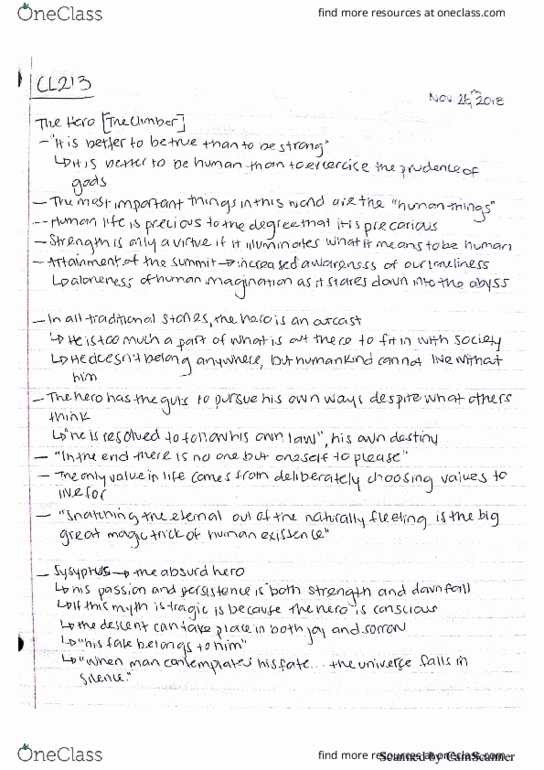 OneClass
find more resources at oneclass.com
CL213
Nov. 26th, 2018
The Hero [The Climber]
- "It is better to be true than to be strong"
↳ it is better to be human than to exercise the prudence of
gods
- The most important things in this world are the "human-things"
- Human life is precious to the degree that it is precarious
- Strength is only a virtue if it illuminates what it means to be human
- Attainment of the summit → increased awareness of our loneliness
↳ aloneness of human imagination as it stares down into the abyss
- In all traditional stories, the hero is an outcast
↳ He is too much a part of what is out there to fit in with society
↳ He doesn't belong anywhere, but humankind cannot live without
him
- The hero has the guts to pursue his own ways despite what others
think
↳ "he is resolved to follow his own law", his own destiny
- "In the end there is no one but oneself to please"
- The only value in life comes from deliberately choosing values to
live for
- "Snatching the eternal out of the naturally fleeting is the big
great magic trick of human existence"
- Sysyphus → the absurd hero
↳ his passion and persistence is both strength and downfall
↳ If this myth is tragic is because the hero is conscious
↳ the descent can take place in both joy and sorrow
↳ "his fate belongs to him"
↳ "when man contemplates his fate... the universe falls in
silence."
OneClass
find more resources at oneclass.com
Scanned by CamScanner